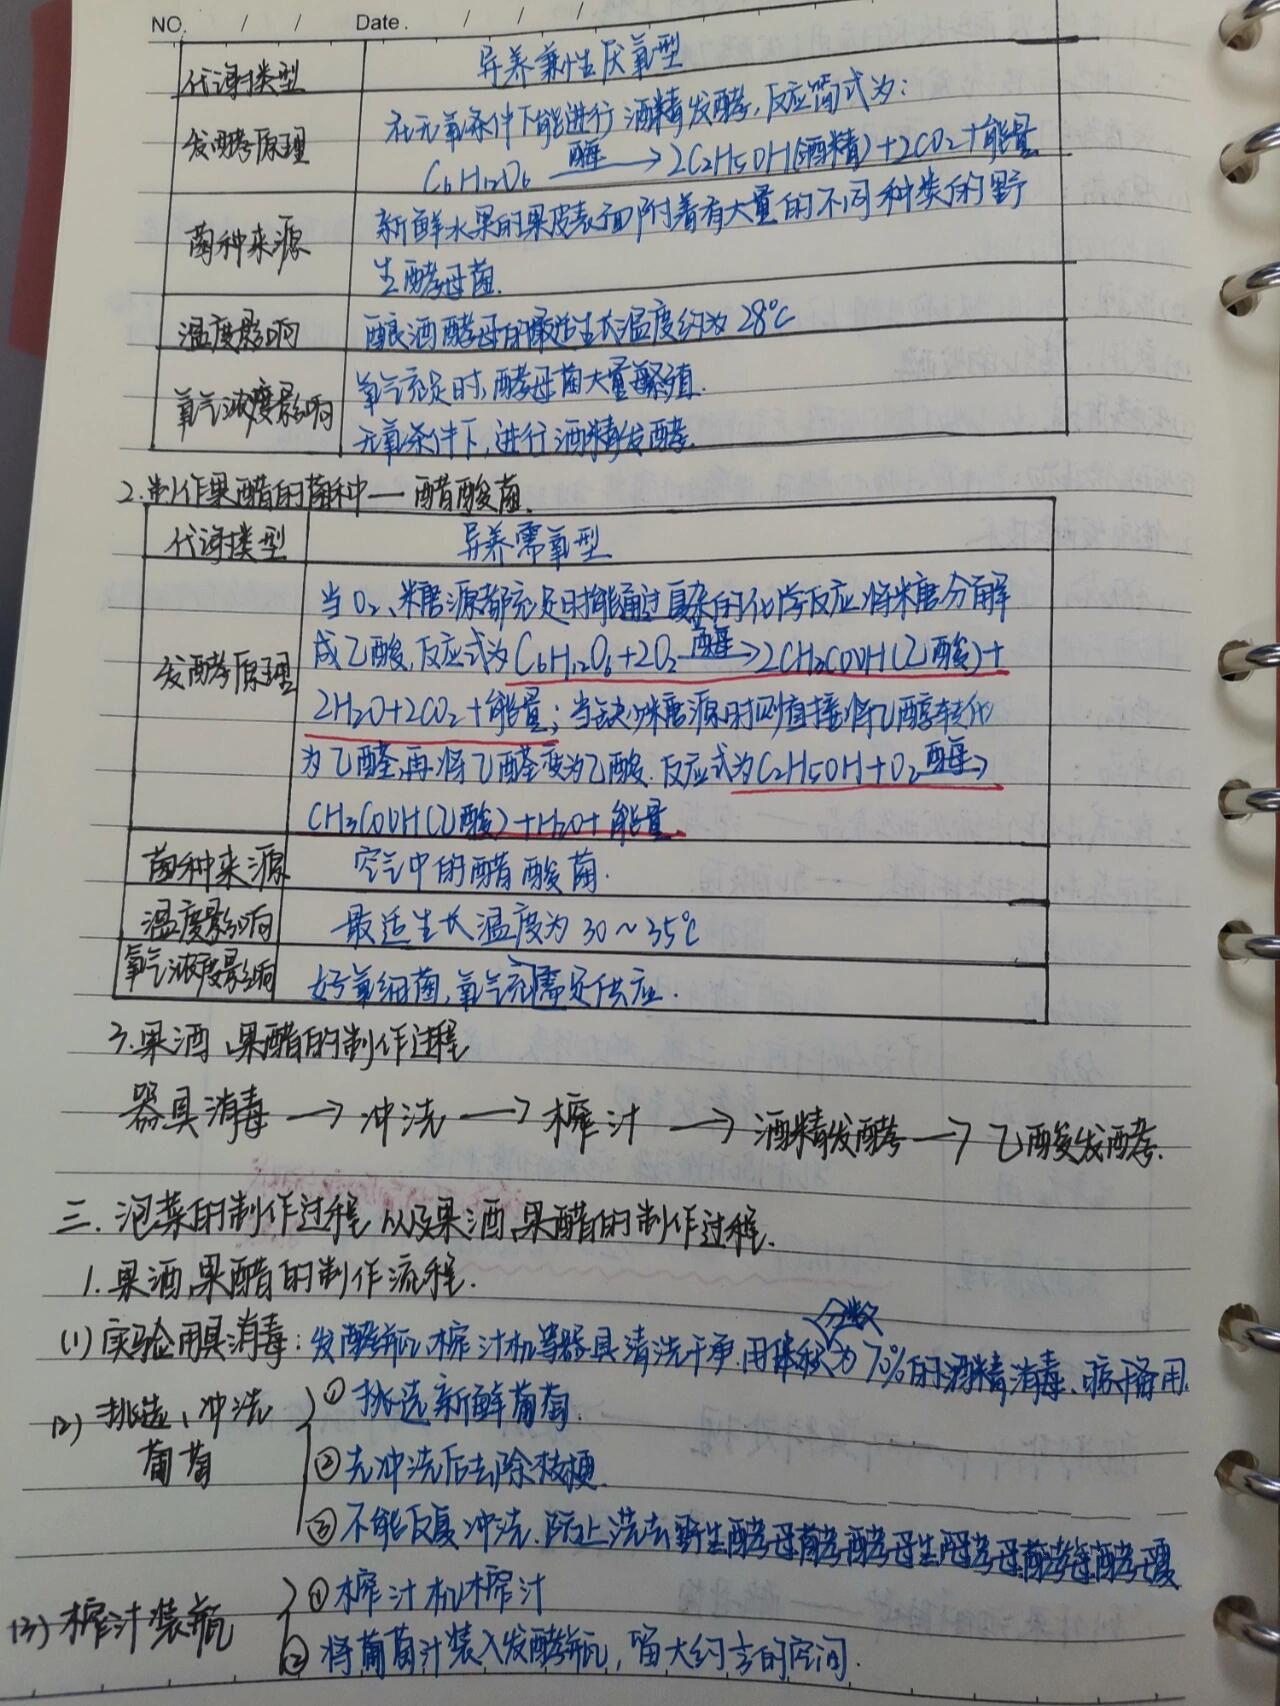 NO. / / / Date. / / /
代谢类型 异养兼性厌氧型
发酵原理 在无氧条件下能进行酒精发酵,反应简式为:
C6H12O6 酶→ 2C2H5OH(酒精)+2CO2+能量
菌种来源 新鲜水果的果皮表面附着有大量的不同种类的野
生酵母菌.
温度影响 酿酒酵母的最适生长温度约为28℃
氧气浓度影响 氧气充足时,酵母菌大量繁殖.
无氧条件下,进行酒精发酵.
2.制作果醋的菌种—醋酸菌.
代谢类型 异养需氧型
当O2、糖源都充足时能通过复杂的化学反应将糖分解
发酵原理 成乙酸,反应式为C6H12O6+2O2 酶→2CH3COOH(乙酸)+
2H2O+2CO2+能量;当缺少糖源时则直接将乙醇转化
为乙醛,再将乙醛变为乙酸.反应式为C2H5OH+O2 酶→
CH3COOH(乙酸)+H2O+能量.
菌种来源 空气中的醋酸菌.
温度影响 最适生长温度为30~35℃
氧气浓度影响 好氧细菌,氧气需充足供应.
3.果酒、果醋的制作过程
器具消毒→冲洗→榨汁→酒精发酵→乙酸发酵.
三.泡菜的制作过程以及果酒、果醋的制作过程.
1.果酒、果醋的制作流程.
(1)实验用具消毒:发酵瓶、榨汁机等器具清洗干净.用体积分数为70%的酒精消毒、晾干备用.
(2)挑选、冲洗 ①挑选新鲜葡萄.
葡萄 ②先冲洗后去除枝梗.
③不能反复冲洗.防止洗去野生酵母菌
(3)榨汁装瓶 ①榨汁机榨汁
②将葡萄汁装入发酵瓶,留大约⅓的空间.